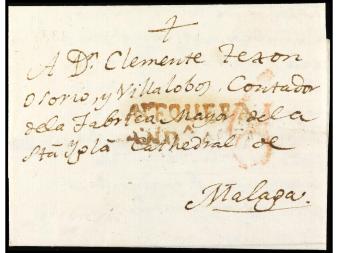 A Dn. Clemente Texon
Osorio, y Villalobos, Contador
dela Fabrica Mayor de la
Sta Ygla Cathedral de
Malaga.
ANTEQUERA